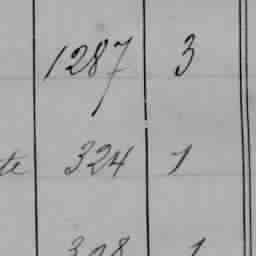 1287 3
te 324 1
308 1